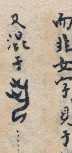 而非女字見于
又混于